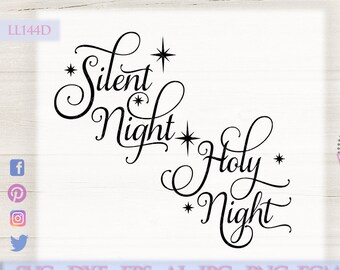 LL144D
Silent
Night
Holy
Night
SVG DXF EPS AI JPG PNG